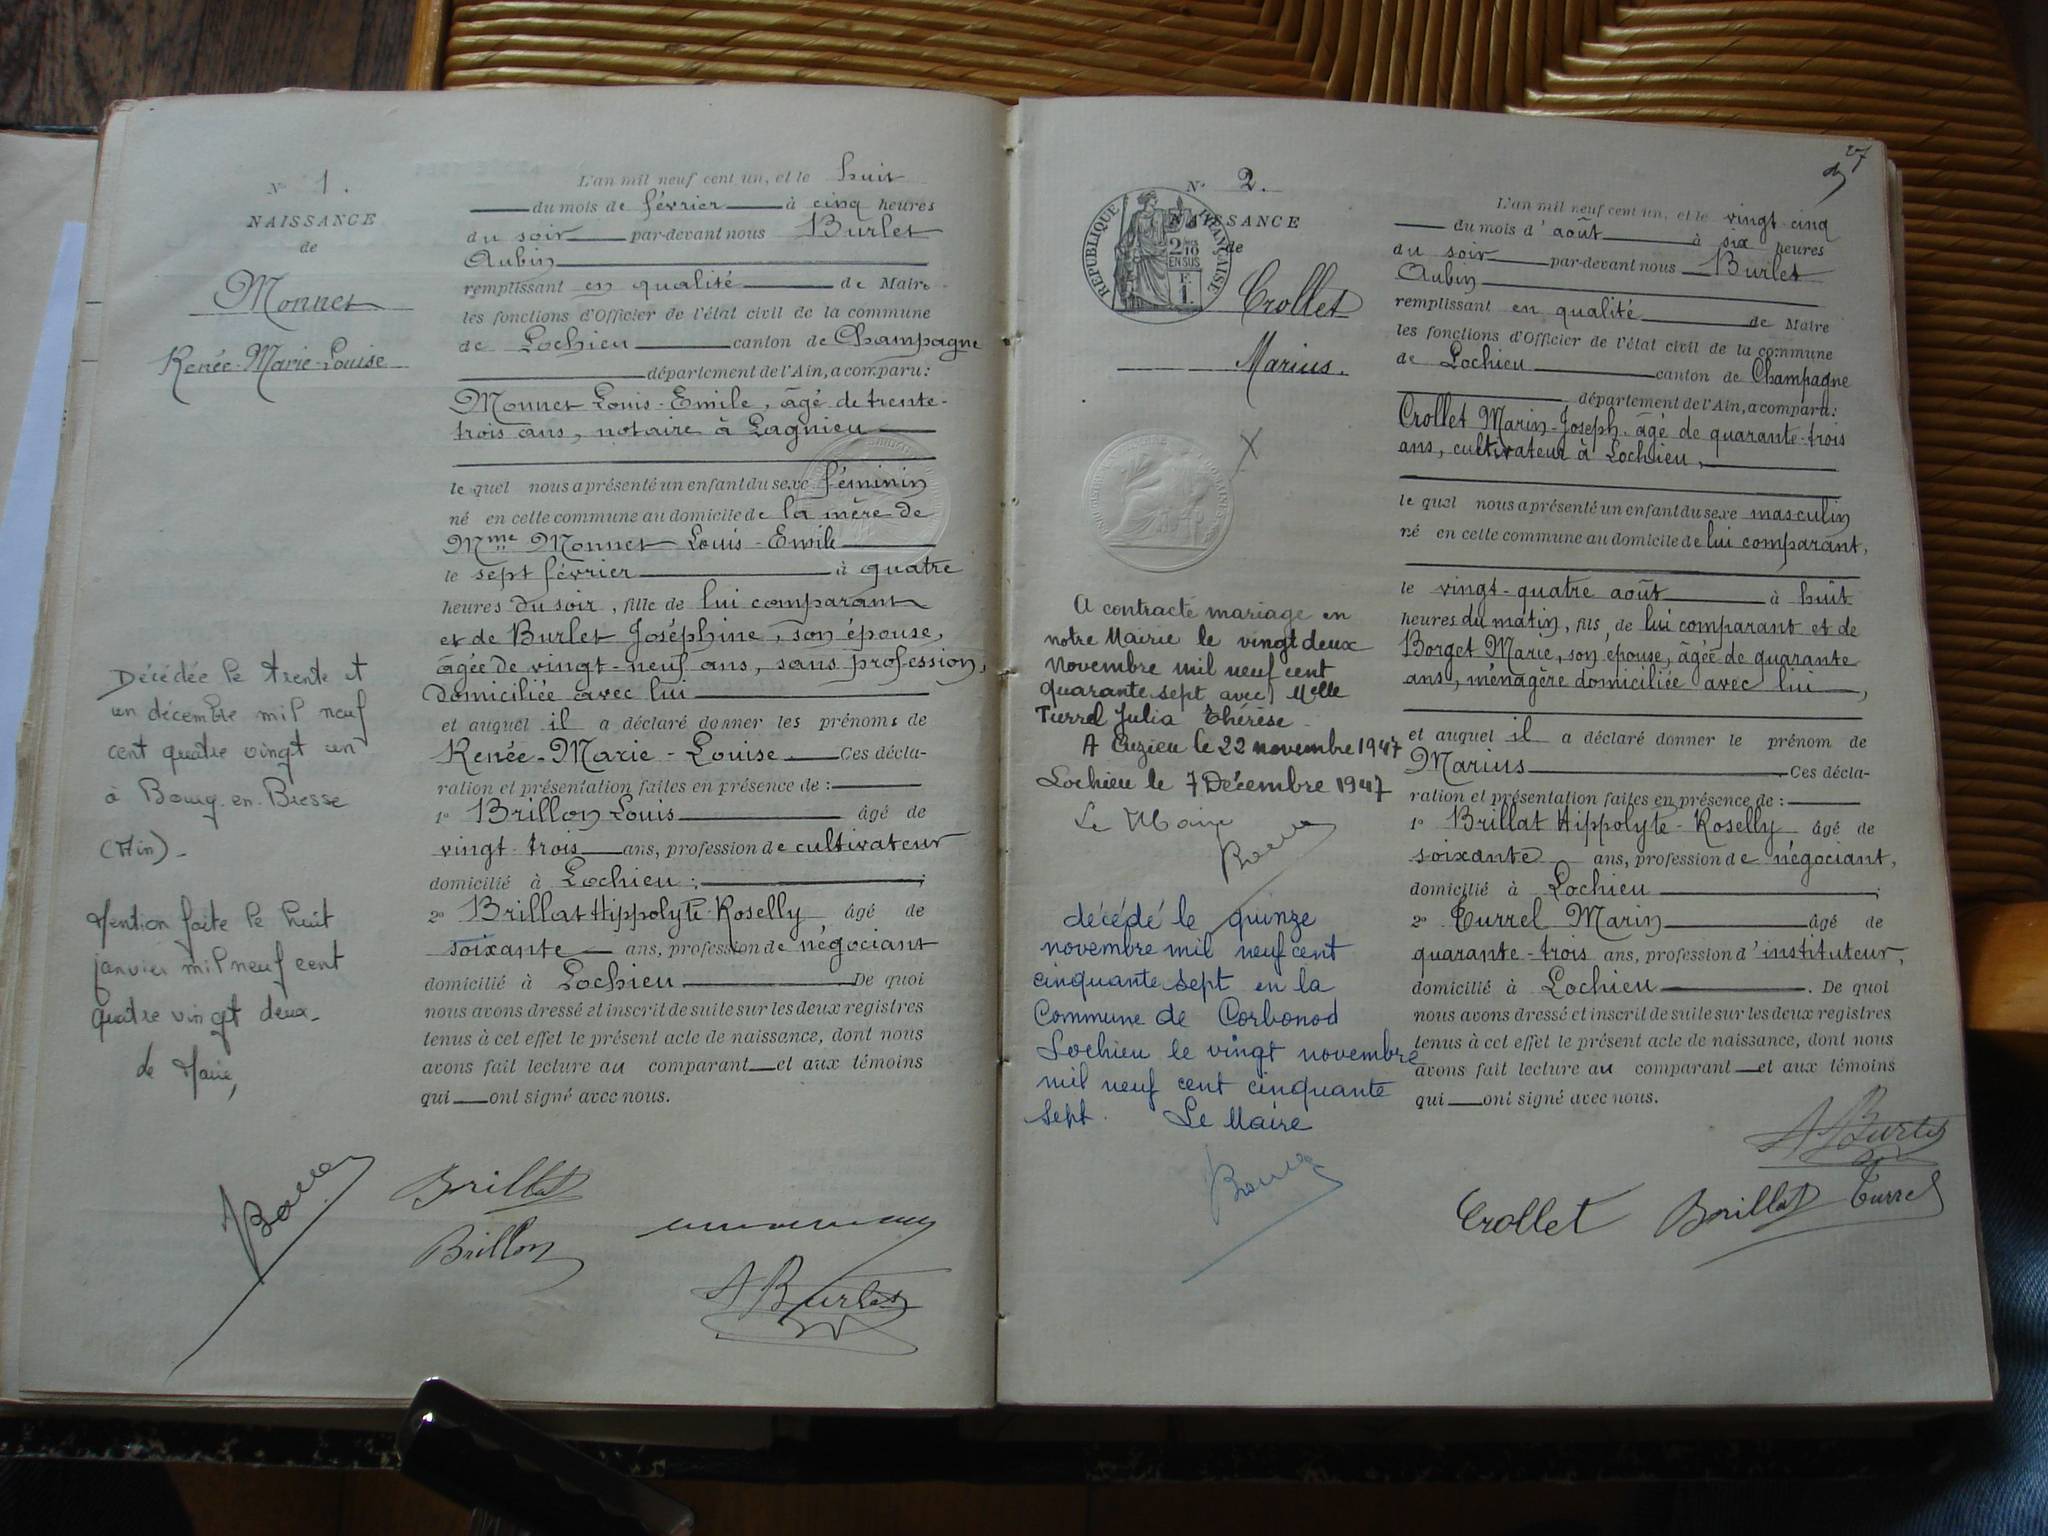 N° 1.
NAISSANCE
de
Monnet
Renée-Marie-Louise
Décédée le trente et
un décembre mil neuf
cent quatre vingt un
à Bourg-en-Bresse
(Ain)-
Mention faite le huit
janvier mil neuf cent
quatre vingt deux-
Le Maire,
L'an mil neuf cent un, et le huit
du mois de février à cinq heures
du soir par-devant nous Burlet
Aubin
remplissant en qualité de Maire
les fonctions d'Officier de l'état civil de la commune
de Lochieu canton de Champagne
département de l'Ain, a comparu:
Monnet Louis-Emile, âgé de trente-
trois ans, notaire à Lagnieu
le quel nous a présenté un enfant du sexe féminin
né en cette commune au domicile de la mère de
Mme Monnet Louis-Emile
le sept février à quatre
heures du soir, fille de lui comparant
et de Burlet Joséphine, son épouse,
âgée de vingt-neuf ans, sans profession,
domiciliée avec lui
et auquel il a déclaré donner les prénoms de
Renée-Marie-Louise. Ces décla-
ration et présentation faites en présence de :
1° Brillon Louis âgé de
vingt-trois ans, profession de cultivateur
domicilié à Lochieu ;
2° Brillat Hippolyte-Roselly âgé de
soixante ans, profession de négociant
domicilié à Lochieu De quoi
nous avons dressé et inscrit de suite sur les deux registres
tenus à cet effet le présent acte de naissance, dont nous
avons fait lecture au comparant et aux témoins
qui ont signé avec nous.
Brillat
Brillon
A Burlet
27
N° 2.
NAISSANCE
de
RÉPUBLIQUE FRANÇAISE
2/10
EN SUS
F
1.
Crollet
Marius.
A contracté mariage en
notre Mairie le vingt deux
novembre mil neuf cent
quarante sept avec Melle
Turrel Julia Thérèse
A Cuzieu le 22 novembre 1947
Lochieu le 7 Décembre 1947
Le Maire
décédé le quinze
novembre mil neuf cent
cinquante sept en la
Commune de Corbonod
Lochieu le vingt novembre
mil neuf cent cinquante
sept. Le Maire
L'an mil neuf cent un, et le vingt-cinq
du mois d'août à six heures
du soir par-devant nous Burlet
Aubin
remplissant en qualité de Maire
les fonctions d'Officier de l'état civil de la commune
de Lochieu canton de Champagne
département de l'Ain, a comparu:
Crollet Marin-Joseph, âgé de quarante-trois
ans, cultivateur à Lochieu,
le quel nous a présenté un enfant du sexe masculin
né en cette commune au domicile de lui comparant,
le vingt-quatre août à huit
heures du matin, fils de lui comparant et de
Borget Marie, son épouse, âgée de quarante
ans, ménagère domiciliée avec lui,
et auquel il a déclaré donner le prénom de
Marius. Ces décla-
ration et présentation faites en présence de :
1° Brillat Hippolyte-Roselly âgé de
soixante ans, profession de négociant,
domicilié à Lochieu ;
2° Turrel Marin âgé de
quarante-trois ans, profession d'instituteur,
domicilié à Lochieu. De quoi
nous avons dressé et inscrit de suite sur les deux registres
tenus à cet effet le présent acte de naissance, dont nous
avons fait lecture au comparant et aux témoins
qui ont signé avec nous.
A Burlet
Crollet Brillat Turrel